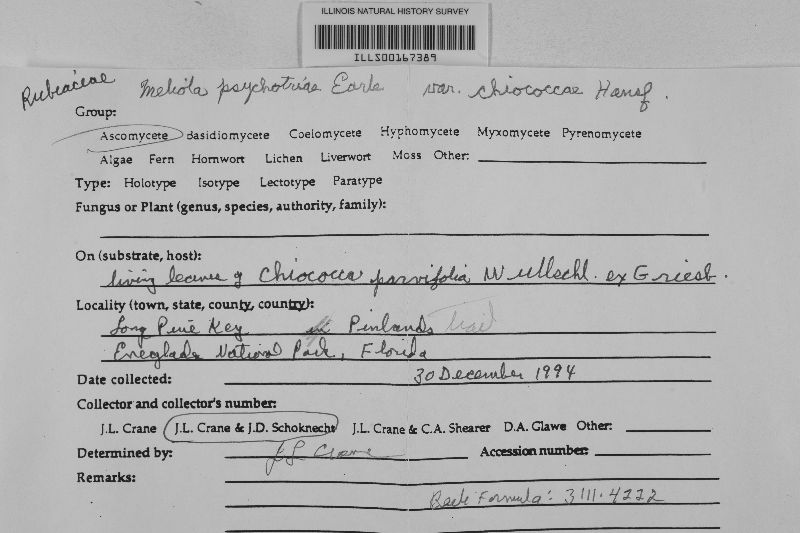 ILLINOIS NATURAL HISTORY SURVEY
ILLS00167389
Rubiaceae Meliola psychotriae Earle var. chiococcae Hansf.
Group:
Ascomycete Basidiomycete Coelomycete Hyphomycete Myxomycete Pyrenomycete
Algae Fern Hornwort Lichen Liverwort Moss Other:
Type: Holotype Isotype Lectotype Paratype
Fungus or Plant (genus, species, authority, family):
On (substrate, host):
living leaves of Chiococca parvifolia Wullschl. ex Griseb.
Locality (town, state, county, country):
Long Pine Key Pinlands trail
Everglades National Park, Florida
Date collected: 30 December 1994
Collector and collector's number:
J.L. Crane J.L. Crane & J.D. Schoknecht J.L. Crane & C.A. Shearer D.A. Glawe Other:
Determined by: J L Crane Accession number:
Remarks:
Beeli Formula: 3111.4222